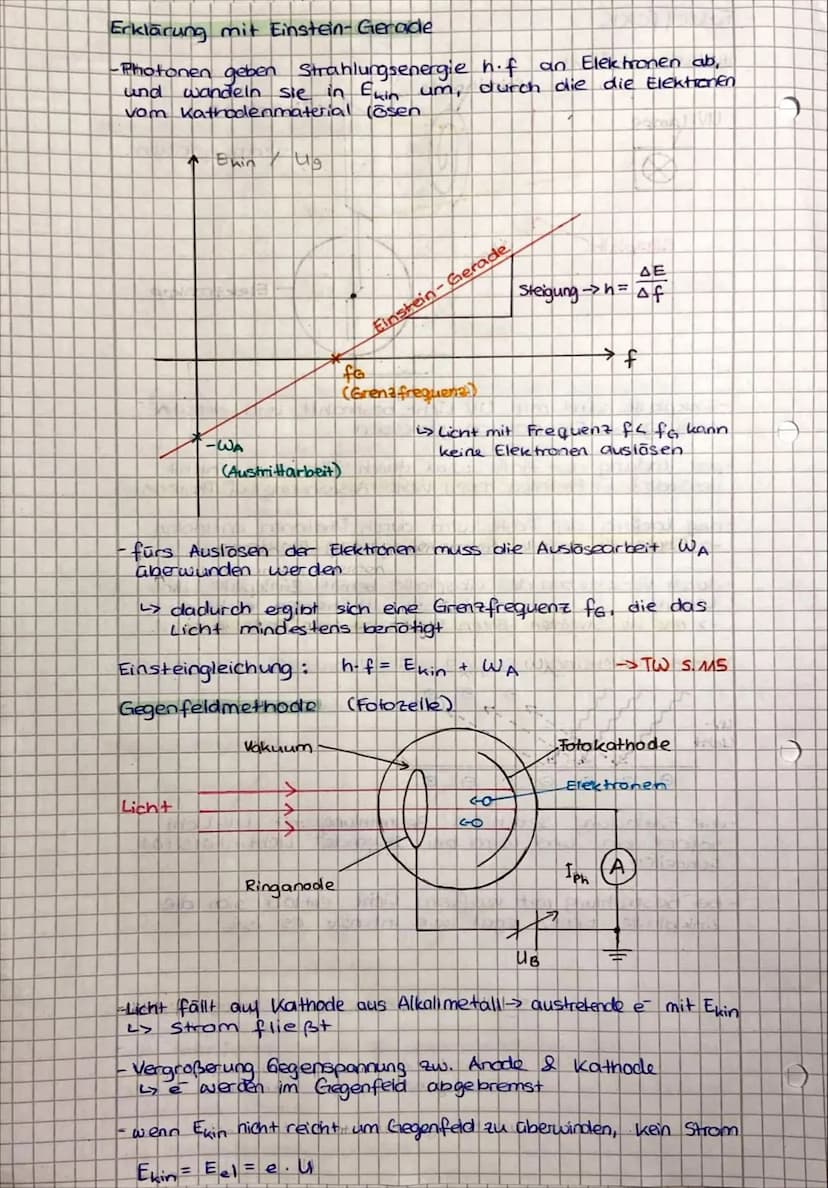 Erklärung mit Einstein-Gerade
-Photonen geben Strahlungsenergie h·f an Elektronen ab,
und wandeln sie in Ekin um, durch die die Elektronen
vom Kathodenmaterial lösen
Ekin / Ug
Einstein-Gerade
Steigung -> h = ΔE/Δf
f
fG
(Grenzfrequenz)
↳ Licht mit Frequenz f< fG kann
keine Elektronen auslösen
-WA
(Austrittarbeit)
- fürs Auslösen der Elektronen muss die Auslösearbeit WA
überwunden werden
↳ dadurch ergibt sich eine Grenzfrequenz fG, die das
Licht mindestens benötigt
Einsteingleichung: h·f = Ekin + WA -> TW S. 115
Gegenfeldmethode (Fotozelle)
Vakuum
Fotokathode
Elektronen
Licht
Ringanode
IPh
A
UB
-Licht fällt auf Kathode aus Alkalimetall -> austretende e⁻ mit Ekin
↳ Strom fließt
- Vergrößerung Gegenspannung zw. Anode & Kathode
↳ e⁻ werden im Gegenfeld abgebremst
- wenn Ekin nicht reicht um Gegenfeld zu überwinden, kein Strom
Ekin = Eel = e · U